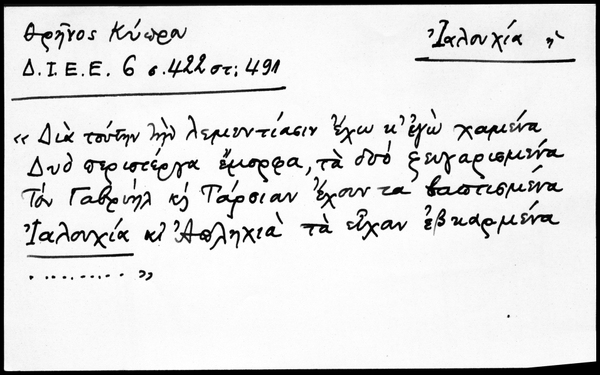 Θρῆνος Κύπρου
Ἰαλουχία ἡ
Δ.Ι.Ε.Ε. 6 σ. 422 στ: 491
«Διὰ τούτην τὴν λεμεντίασιν ἔχω κ' ἐγὼ χαμένα
Δυὸ περιστέργα ἔμορφα, τὰ δυό ζευγαρισμένα
Τὸν Γαβριὴλ κὴ Τάρσιαν ἔχουν τα βαπτισμένα
Ἰαλουχία κι Ἀπληχιὰ τὰ εἶχαν ἐβκαρμένα
..........»